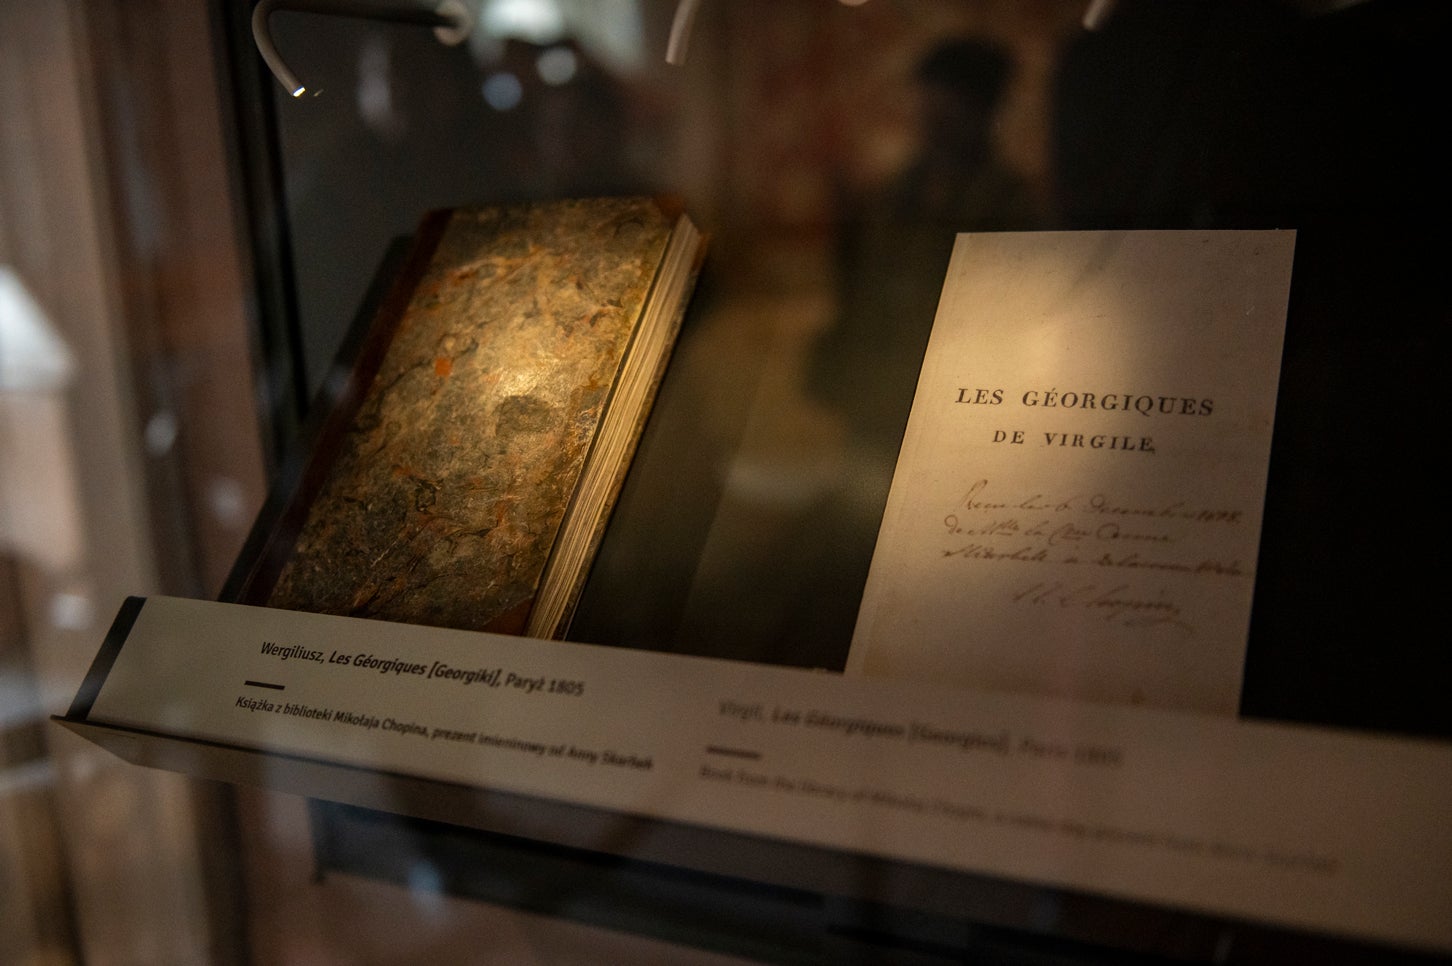 LES GÉORGIQUES
DE VIRGILE
N. Chopin
Wergiliusz, Les Géorgiques [Georgiki], Paryż 1805
Książka z biblioteki Mikołaja Chopina, prezent imieninowy od Anny Skarbek
Virgil, Les Géorgiques [Georgics], Paris 1805
Book from the library of Mikołaj Chopin, a name-day present from Anna Skarbek